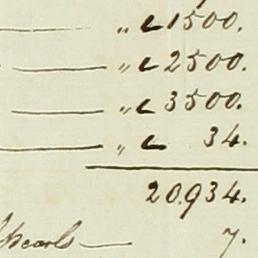 — „ c 1500.
— „ c 2500.
— „ c 3500.
— „ c 34.
20.934.
Pearls — 7.